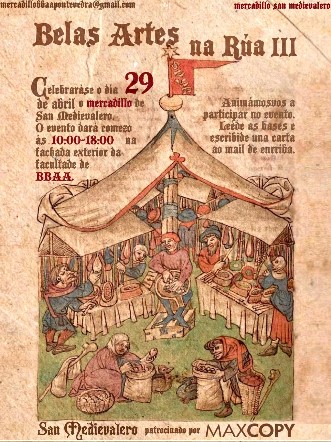 mercadillobbaapontevedra@gmail.com
mercadillo san medievalero
Belas Artes na Rúa III
Celebrarase o día 29
de abril o mercadillo de
San Medievalero.
O evento dará comezo
ás 10:00-18:00 na
fachada exterior da
facultade de
BBAA.
Animámosvos a
participar no evento.
Leede as bases e
escribide unha carta
ao mail de enrriba.
San Medievalero patrocinado por MAXCOPY